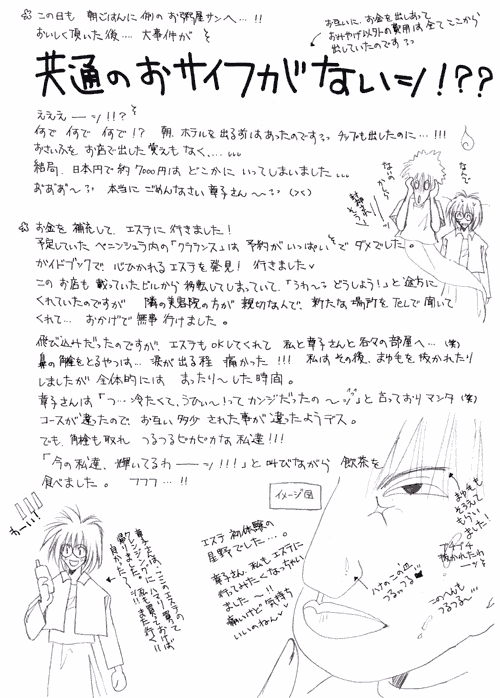 この日も 朝ごはんに例のお粥屋サンへ…!!
おいしく頂いた後…. 大事件が
お互いに、お金を出しあって
おみやげ以外の費用は全てここから
出していたのですっ
共通のおサイフがないーッ!??
えええーーッ!!?
何で 何で 何で!? 朝、ホテルを出る前はあったのですっ チップも出したのに…!!!
おさいふを、お店で出した覚えもなく、…
結局、日本円で約7000円は どこかにいってしまいました
おおお〜っ 本当にごめんなさい 章子さん〜っ
なんで
ないの
かしら
お金を補充して、エステに行きました!
予定していた ペニンシュラ内の「クラランス」は 予約がいっぱいでダメでした。
ガイドブックで、心ひかれるエステを発見! 行きました
このお店も 載っていたビルから移転してしまっていて、「うわ〜 どうしよう!」と途方に
くれていたのですが 隣の美容院の方が 親切なんで、新たな場所を TELで聞いて
くれて… おかげで無事行けました。
飛び込みだったのですが、エステもOKしてくれて 私と章子さんと各々の部屋へ…(笑)
鼻の角栓をとるやつは… 涙が出る程 痛かった!!! 私はその後、まゆ毛を抜かれたり
しましたが 全体的には まったり〜した時間。
章子さんは「つ…冷たくて、うひぃ〜!ってカンジだったの〜」と言っておりマシタ(笑)
コースが違ったので お互い多少 された事が違ったようデス。
でも、角栓も取れ つるつるピカピカな私達!!!
「今の私達、輝いてるわーーッ!!!」と叫びながら 飲茶を
食べました。 フフフ…!!
イメージ図
わーい!!
エステ初体験の
星野でした…。
章子さん、私もエステに
行ってみたくなっちゃい
ました〜!!
痛いけど気持ち
いいのねん
まゆ毛も
そろえて
もらい
ました!
抜かれたわーッ
ハナのこの辺
つるつる
このへんも
つるつる〜